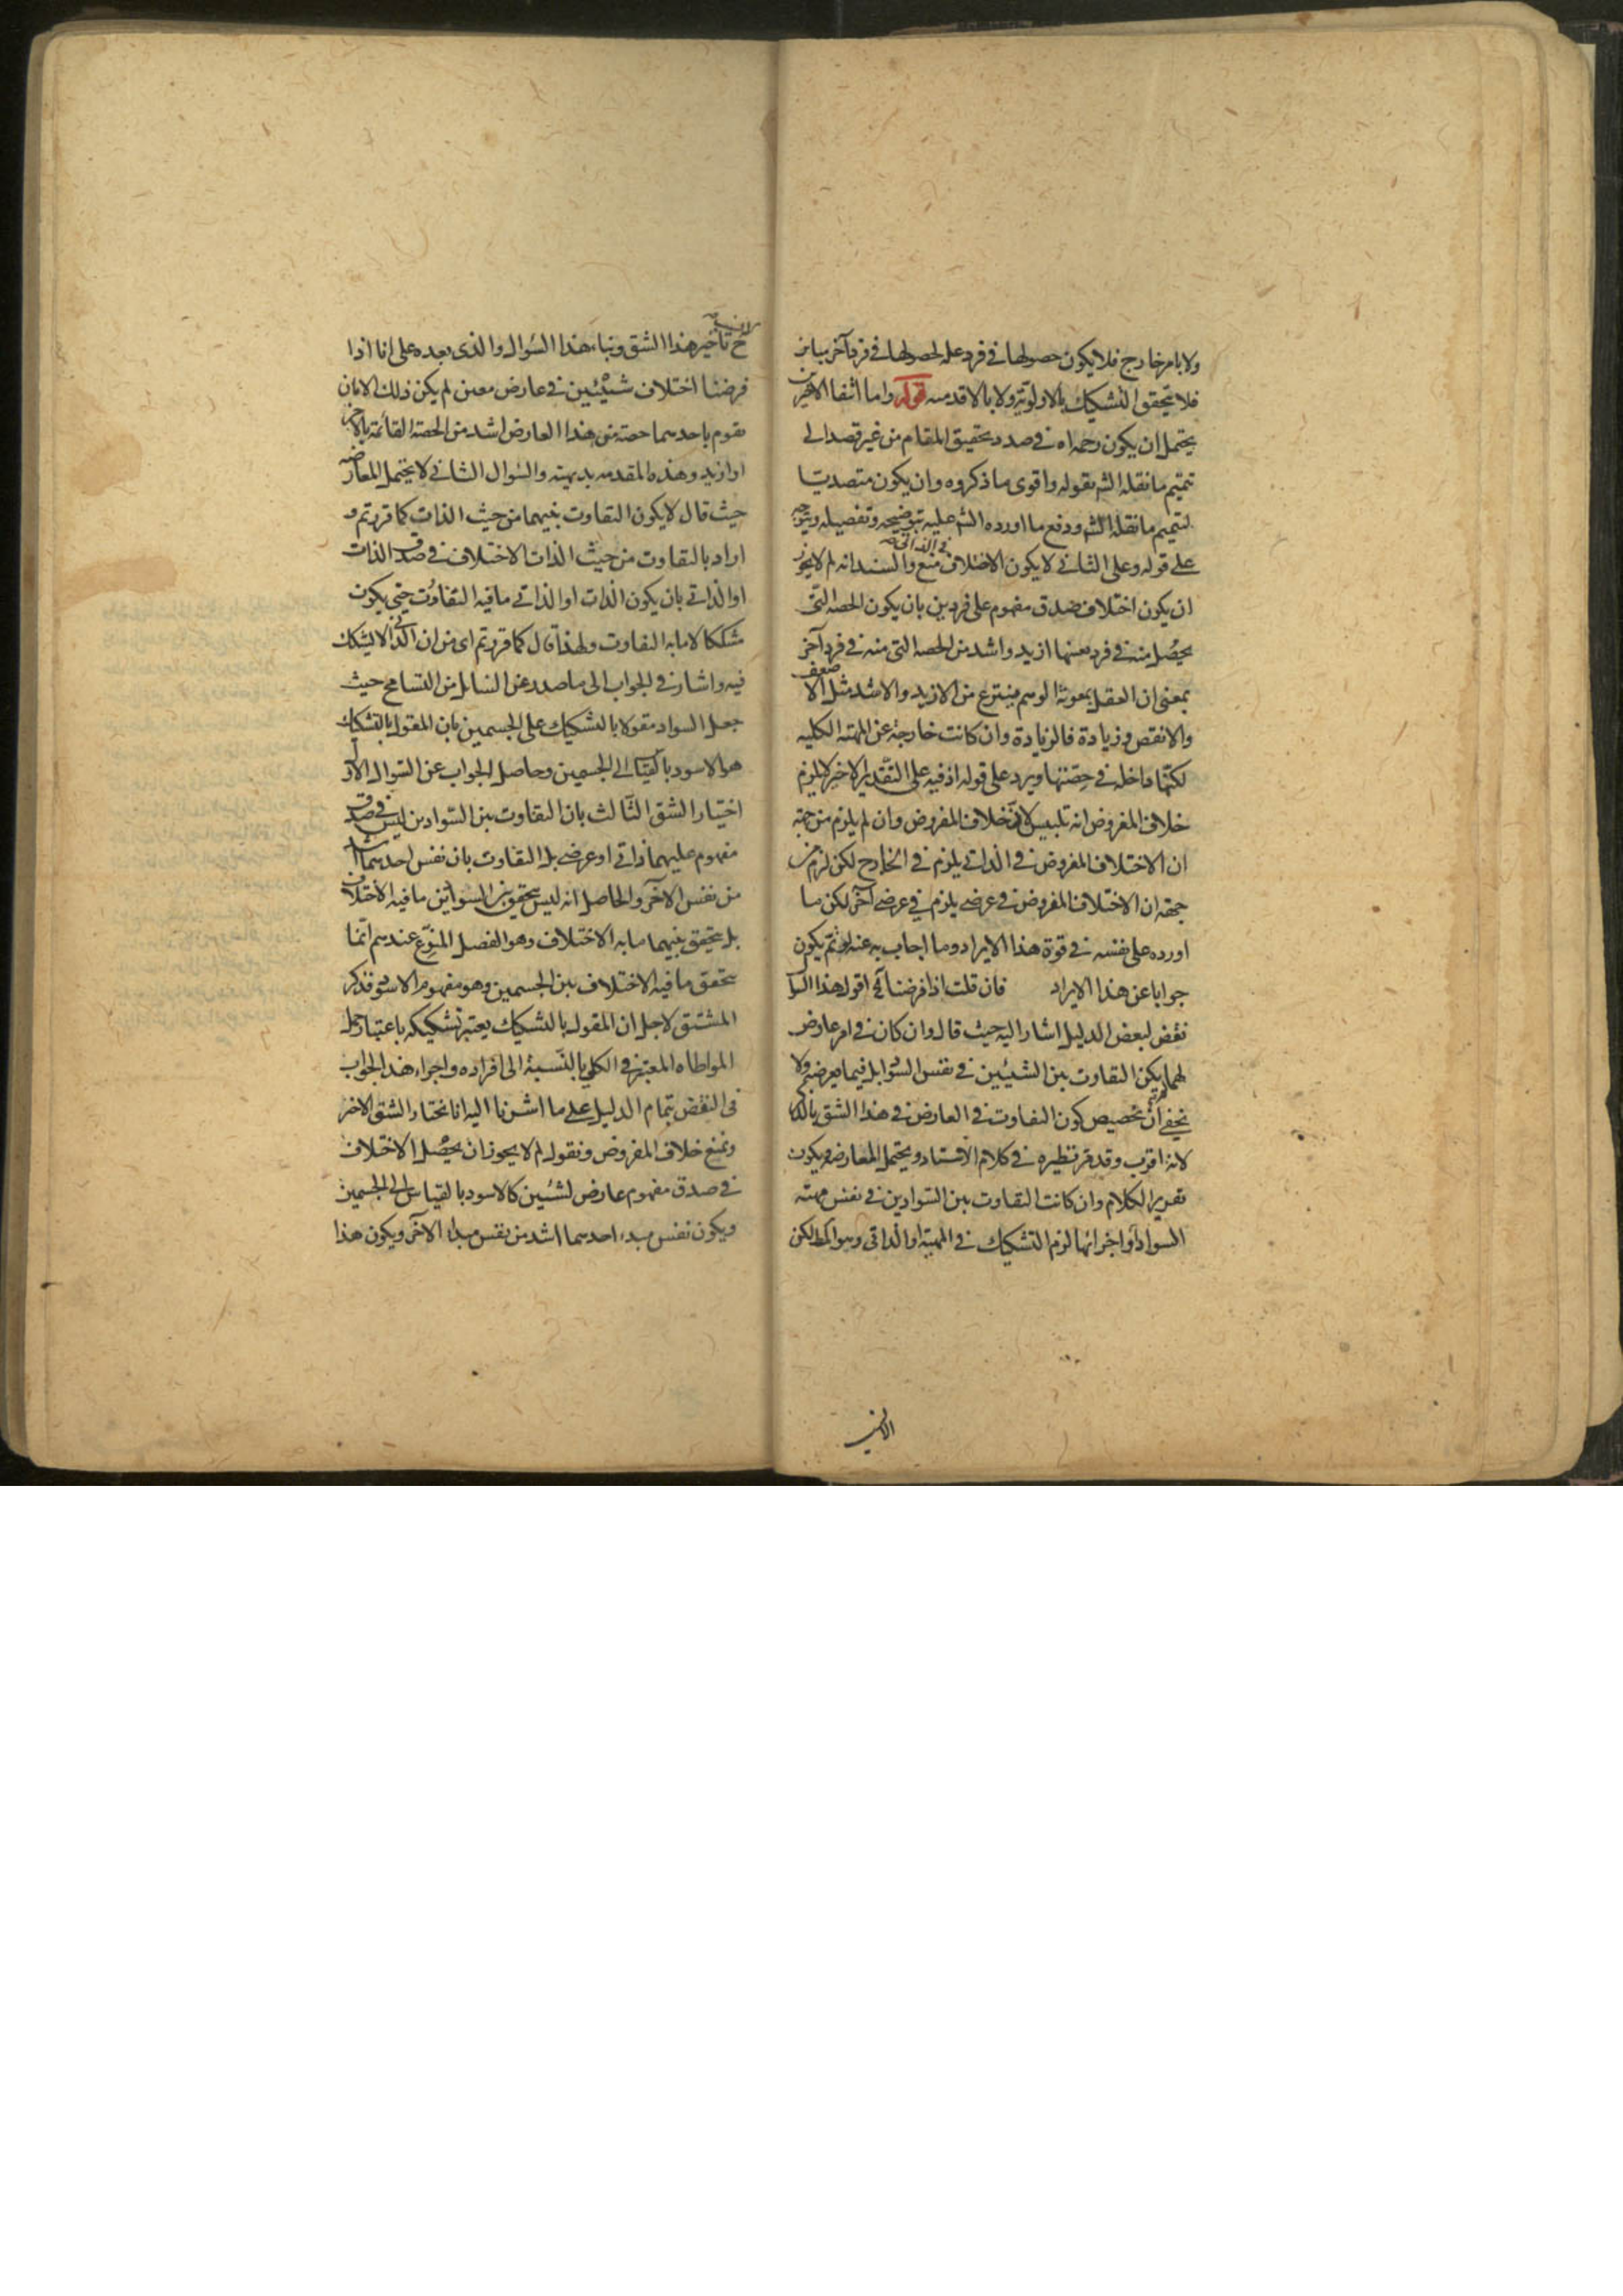 ولا بامر خارج فلا يكون حصولها في فرد علة لحصولها في فرد آخر مباين
فلا يتحقق التشكيك بالاولوية ولا بالاقدمية قوله واما انتفا الاخيرين
يحتمل ان يكون رحمه اه في صدد تحقيق المقام من غير قصد الى
تتميم ما نقله الش بقوله واقوى ما ذكروه وان يكون متصديا
لتتميم ما نقله الش ودفع ما اورده الش عليه بتوضيحه وتفصيله ويتوجه
على قوله وعلى الثاني لا يكون الاختلاف منع والسند انه لم لا يجوز
ان يكون اختلاف صدق مفهوم على فردين بان يكون الحصة التي
يحصل منه في فرد بعينها ازيد واشد من الحصه التي منه في فرد آخر
بمعنى ان العقل بمعونة الوهم ينتزع من الازيد والاشد مثل الاضعف
والانقص وزيادة فالزيادة وان كانت خارجة عن المهية الكليه
لكنها داخلة في حصتها ويرد على قوله اذ فيه على التقدير الاخير لا يلزم
خلاف المفروض انه تلبيس لان خلاف المفروض وان لم يلزم من جهة
ان الاختلاف المفروض في الذاتي يلزم في الخارج لكن لزم من
جهة ان الاختلاف المفروض في عرضي يلزم في عرضي آخر لكن ما
اورده على نفسه في قوة هذا الايراد وما اجاب به عنه لو تم يكون
جوابا عن هذا الايراد فان قلت اذا فرضنا آه اقول هذا السوال
نقض لبعض الدليل اشار اليه حيث قال وان كان في امر عارض
لهما لم يكن التفاوت بين الشيئين في نفس السواد بل فيما يعرضهم ولا
يخفى ان تخصيص كون التفاوت في العارض في هذا الشق بالذكر
لانه اقرب وقد قر نظيره في كلام الاستاد ويحتمل المعارضه ويكون
تقرير الكلام وان كانت التفاوت بين السوادين في نفس مهية
السواد او اجزائها لزم التشكيك في المهية او الذاتي وهو المط لكن
ح تاخير هذا الشق وبناء هذا السوال والذى بعده على انا اذا
فرضنا اختلاف شيئين في عارض معين لم يكن ذلك الا بان
يقوم باحدهما حصة من هذا العارض اشد من الحصة القائمة بالآخر
او ازيد وهذه المقدمه بديهية والسوال الثاني لا يحتمل المعارضه
حيث قال لا يكون التفاوت بينهما من حيث الذات كما قررتم و
اراد بالتفاوت من حيث الذات الاختلاف في صدق الذات
او الذاتي بان يكون الذات او الذاتي ما فيه التفاوت حتى يكون
مشككا لا ما به التفاوت ولهذا قال كما قررتم اى من ان الذاتي لا تشكيك
فيه واشار في الجواب الى ما صدر عن السايل من التسامح حيث
جعل السواد مقولا بالتشكيك على الجسمين بان المقول بالتشكيك
هو الاسود بالقياس الى الجسمين وحاصل الجواب عن السوال الاول
اختيار الشق الثالث بان التفاوت بين السوادين ليس في صدق
مفهوم عليهما ذاتي او عرضي بل التفاوت بان نفس احدهما اشد
من نفس الآخر والحاصل انه ليس يتحقق بين السوادين ما فيه الاختلاف
بل يتحقق بينهما ما به الاختلاف وهو الفصل المنوع عندهم انما
يتحقق ما فيه الاختلاف بين الجسمين وهو مفهوم الاسود فذكر
المشتق لاجل ان المقول بالتشكيك يعتبر تشكيكه باعتبار حمل
المواطاه المعتبر في الكلي بالنسبة الى افراده واجراء هذا الجواب
في النقض بتمام الدليل على ما اشرنا اليه انا نختار الشق الاخر
ونمنع خلاف المفروض ونقول لم لا يجوز ان يحصل الاختلاف
في صدق مفهوم عارض لشيئين كالاسود بالقياس الى الجسمين
ويكون نفس مبدء احدهما اشد من نفس مبداء الآخر ويكون هذا